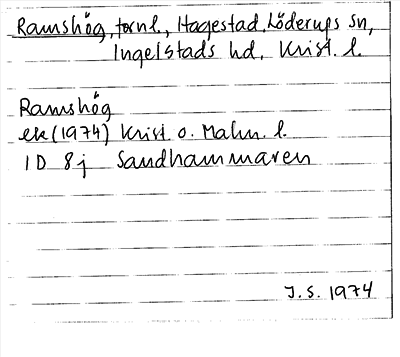 Ramshög, fornl., Hagestad, Löderups sn,
Ingelstads hd, Krist. l.
Ramshög
ek (1974) Krist o. Malm. l.
1D 8j Sandhammaren
J.S. 1974